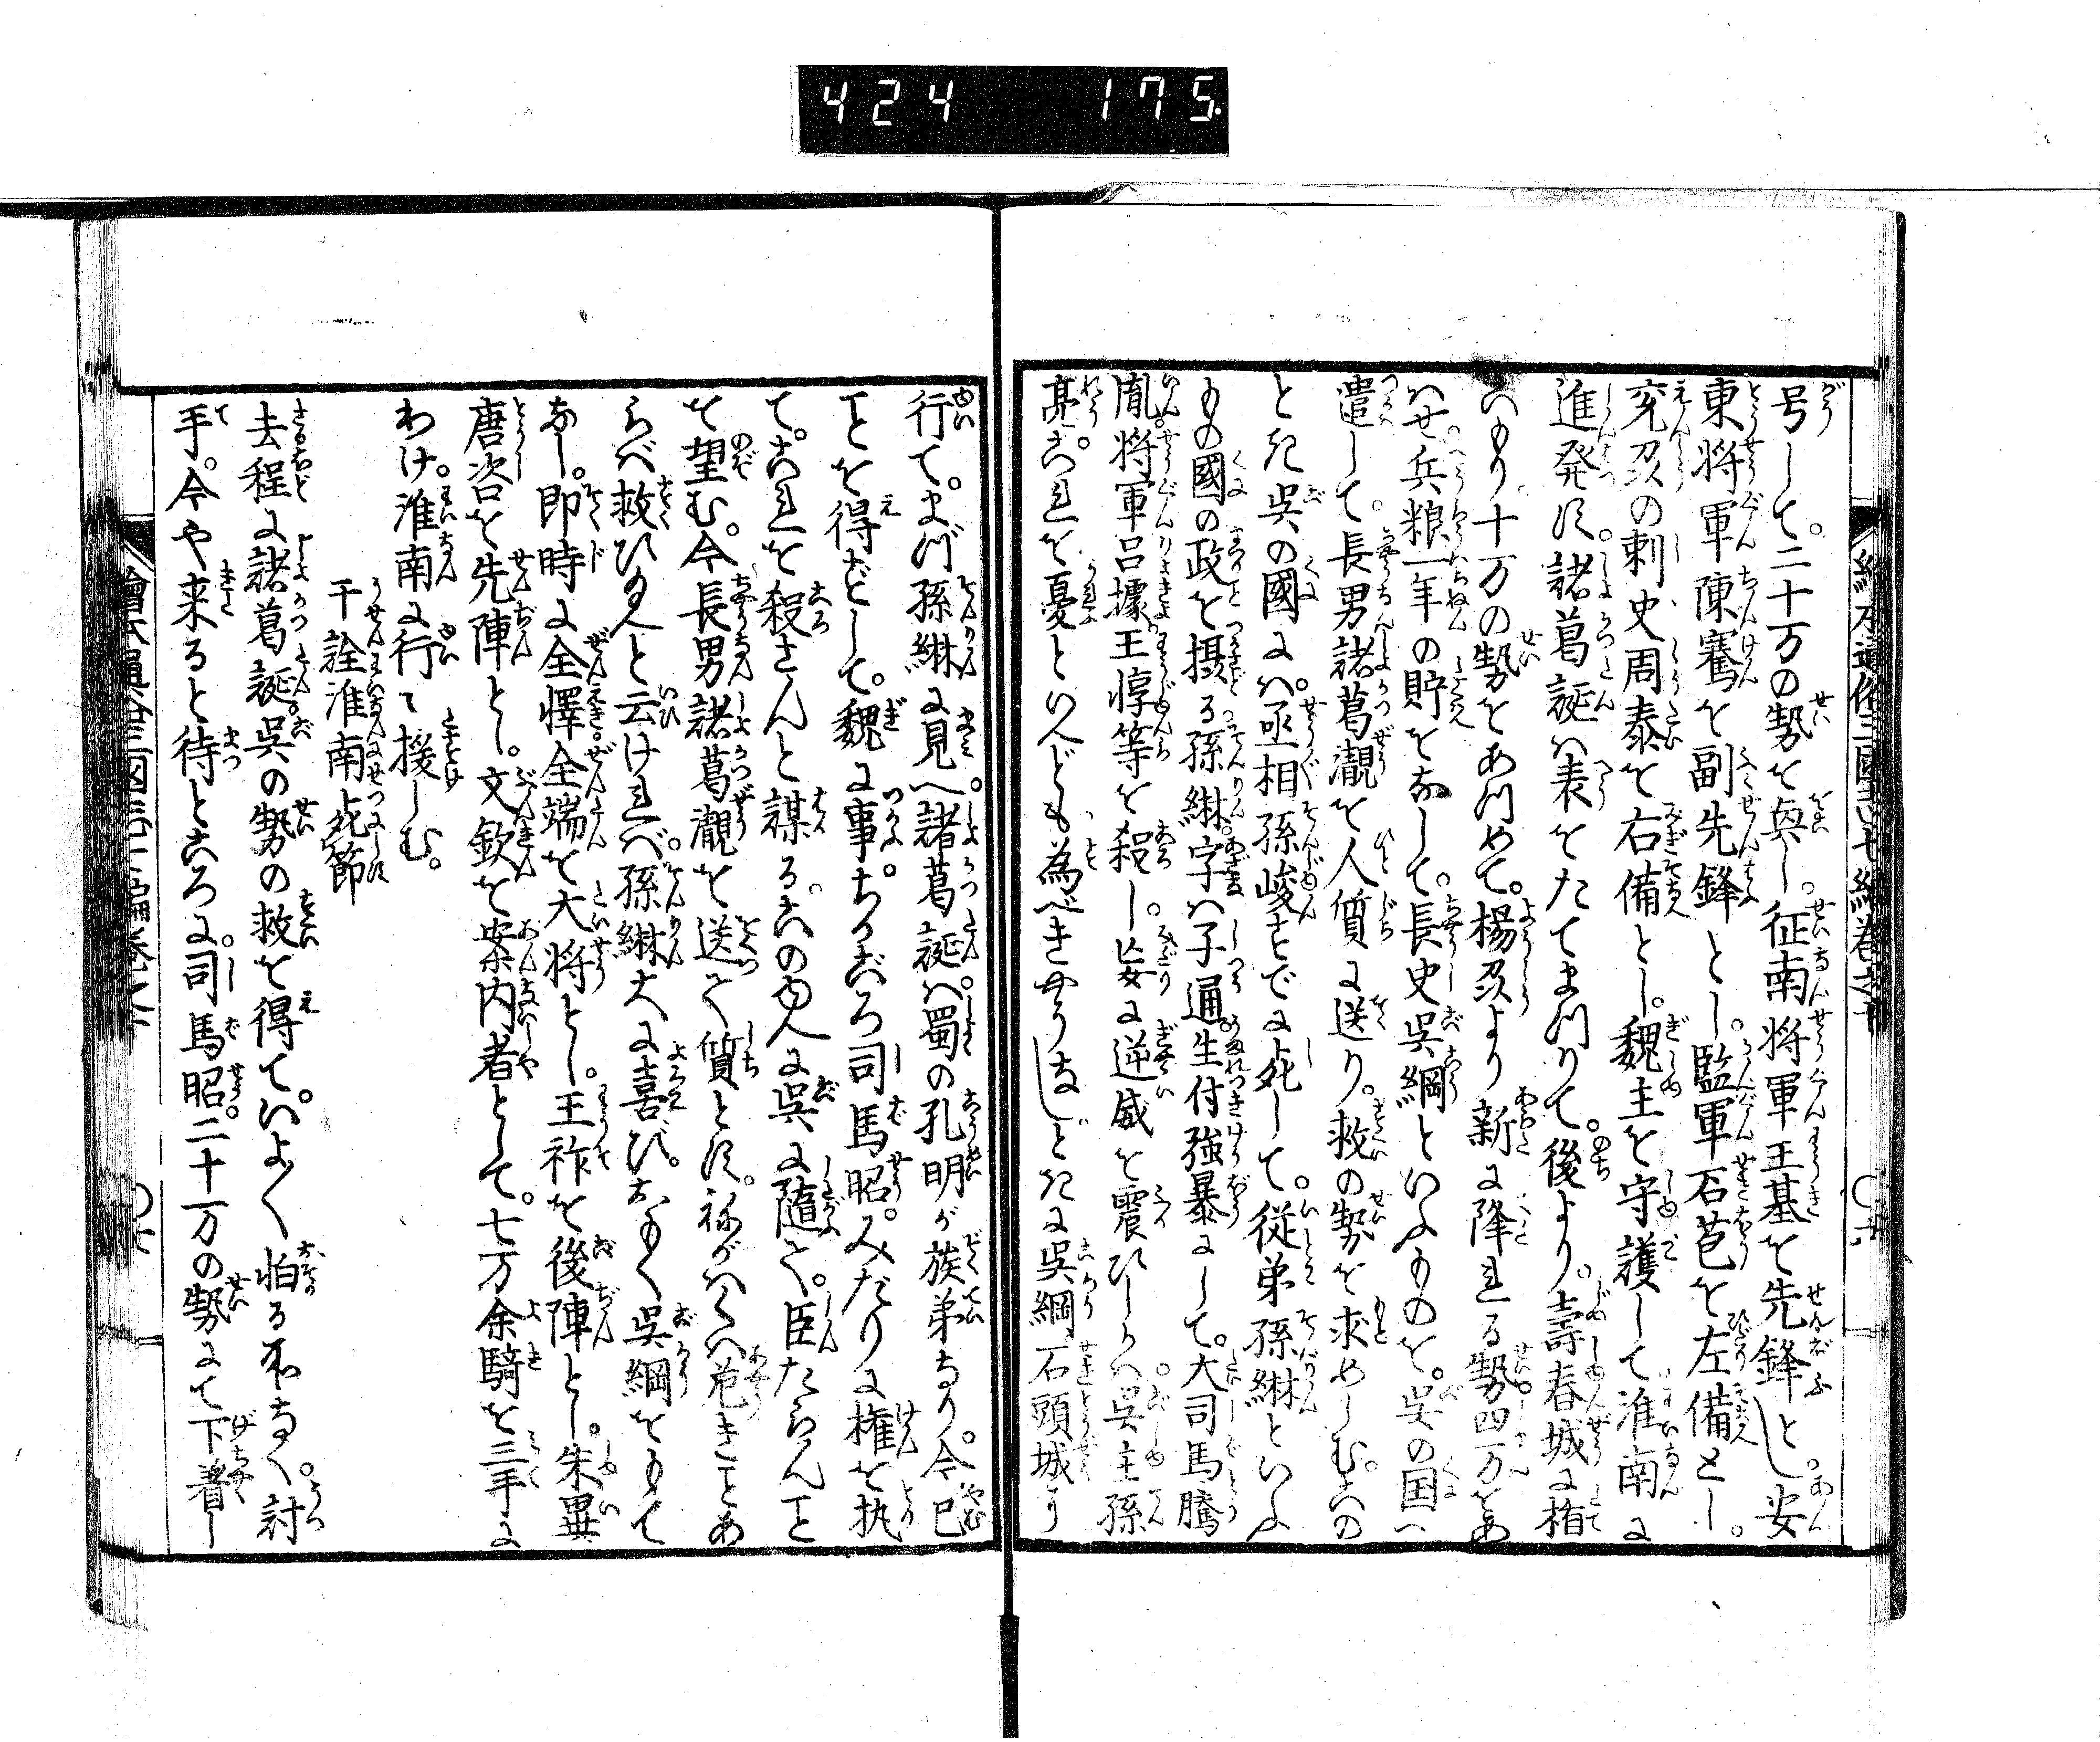 424 175
号して。二十万の勢を與し。征南将軍王基を先鋒とし。安
東将軍陳騫を副先鋒とし。監軍石苞を左備とし。
兖刕の刺史周泰を右備とし。魏主を守護して淮南に
進発す。諸葛誕ハ表をたてまつりて。後より。壽春城に楯
こもり十万の勢をあつめて。楊刕より新に降れる勢四万をあ
はせ兵粮一年の貯をなして。長史呉綱といふものを。呉の国へ
遣して。長男諸葛瀾を人質に送り。救の勢を求めしむ。この
とき呉の國にハ。丞相孫峻すでに死して。従弟孫綝といふ
もの國の政を摂る孫綝。字ハ子通。生付強暴にして。大司馬騰
胤。将軍呂據。王惇等を殺し。妄に逆威を震ひしかハ。呉主孫
亮。これを憂といへども為べきやうなし。ときに呉綱石頭城に
行て。まづ孫綝に見へ諸葛誕ハ。蜀の孔明が族弟なり。今已
ことを得ずして。魏に事。ちかごろ司馬昭。みだりに権を執
て。これを殺さんと謀る。このゆへに呉に隨て。臣たらんこと
を望む。今長男諸葛瀾を送て質とす。ねがハくハ危きことあ
らバ救ひ玉へと云けれバ。孫綝大に喜び。おもく呉綱をもて
なし。即時に全懌全端を大将とし。王祚を後陣とし。朱異
唐咨を先陣とし。文欽を案内者として。七万余騎を三手に
わけ。淮南に行て援しむ。
于詮淮南死節
去程に諸葛誕呉の勢の救を得て。いよ〱怕るゝ不なく。討
手。今や来ると待ところに。司馬昭。二十万の勢にて下着し